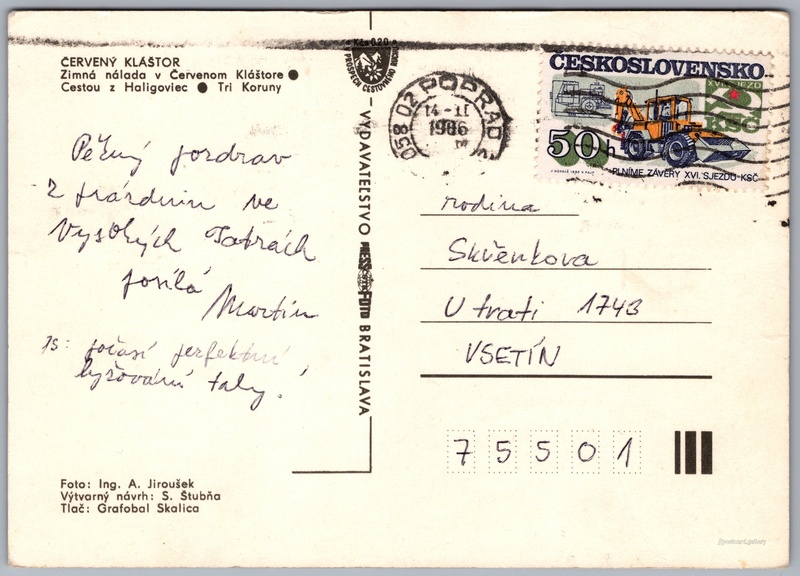 ČERVENÝ KLÁŠTOR
Zimná nálada v Červenom Kláštore ●
Cestou z Haligoviec ● Tri Koruny
Pěkný pozdrav
z prázdnin ve
Vysokých Tatrách
posílá
Martin
PS: počasí perfektní
lyžování taky!
Foto: Ing. A. Jiroušek
Výtvarný návrh: S. Štubňa
Tlač: Grafobal Skalica
Kčs 0,20
VYDAVATEĽSTVO PRESSFOTO BRATISLAVA
058 02 POPRAD
14-II
1986
ČESKOSLOVENSKO
XVII. SJEZD
KSČ
50h
PLNÍME ZÁVĚRY XVI. SJEZDU KSČ
rodina
Skřenkova
U trati 1743
VSETÍN
75501